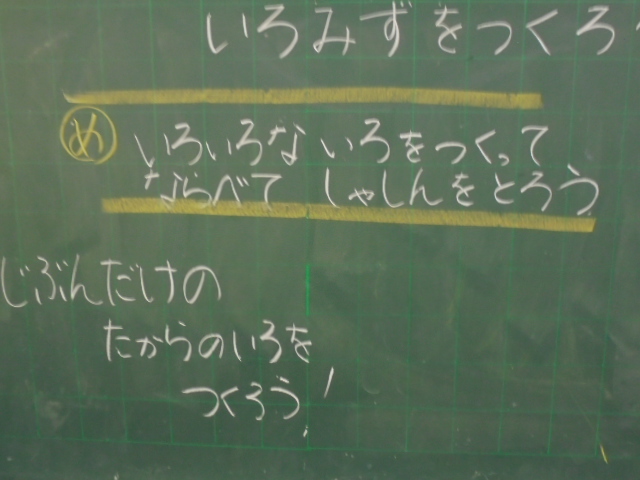 いろみずをつくろう
め いろいろないろをつくって
ならべて しゃしんをとろう
じぶんだけの
たからのいろを
つくろう!